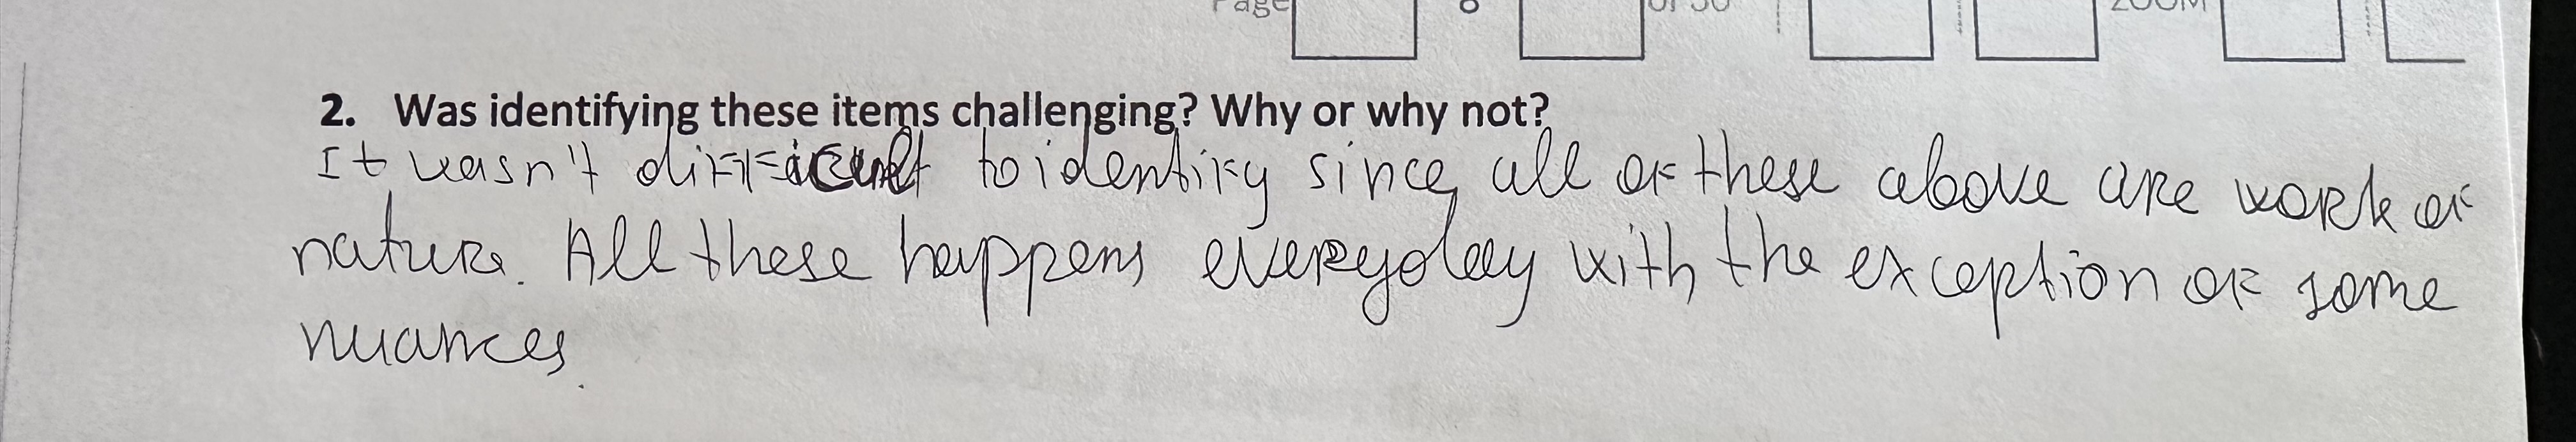 Page 8 of 30 ZOOM
2. Was identifying these items challenging? Why or why not?
It wasn't difficult to identify since all of these above are work of
nature. All these happens everyday with the exception of some
nuances.